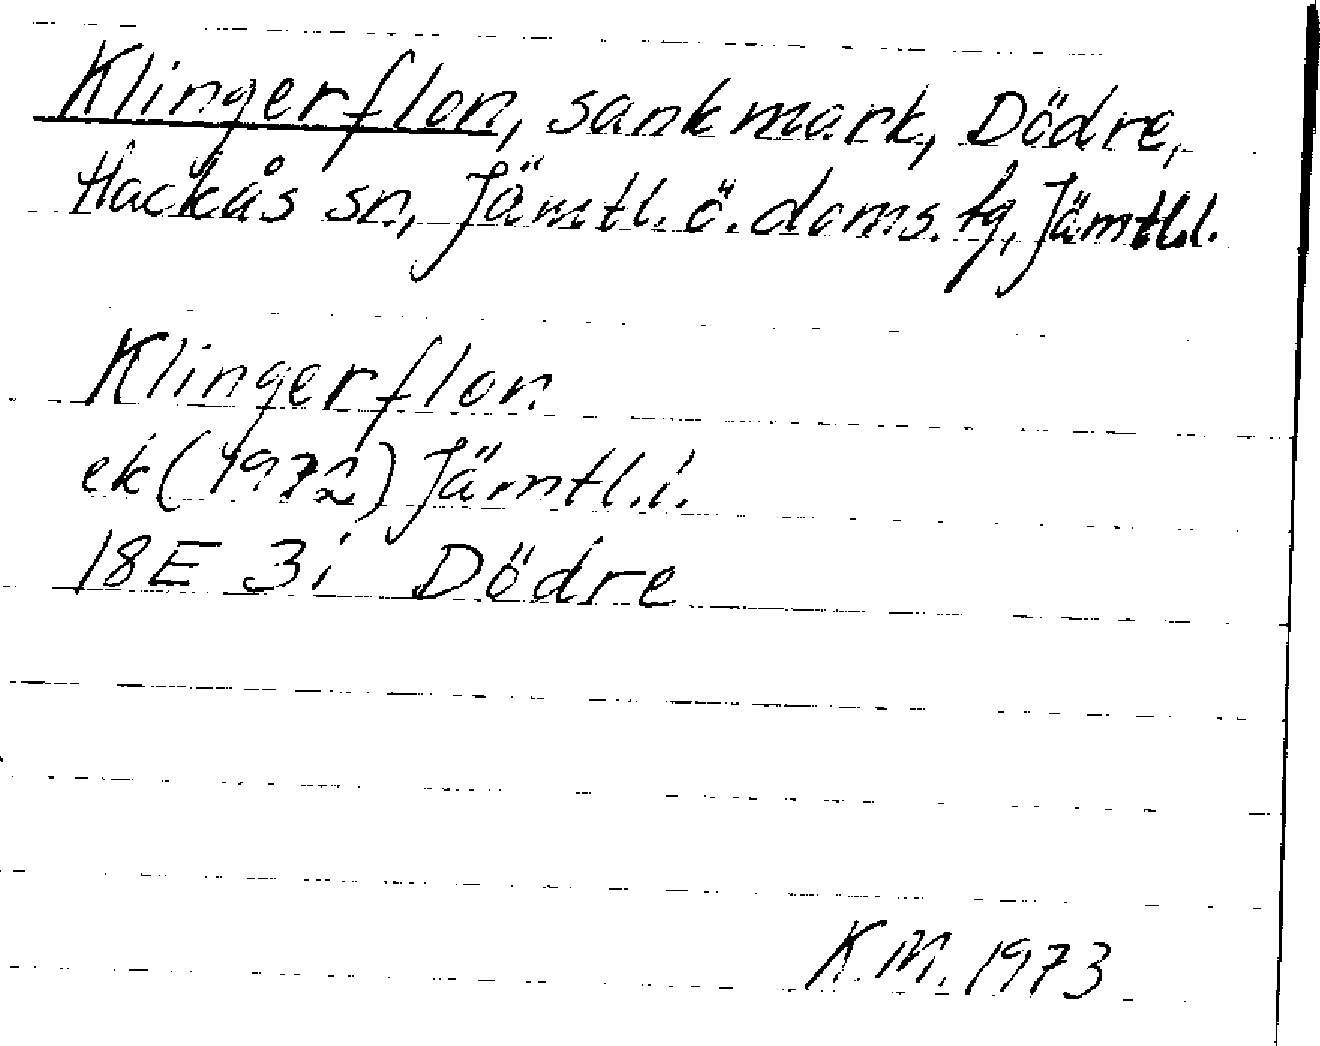 Klingerflon, sankmark, Dödre,
Hackås sn, Jämtl. ö. doms. tg, Jämtl.l.
Klingerflon
ek (1972) Jämtl.l.
18E 3i Dödre
K.M. 1973